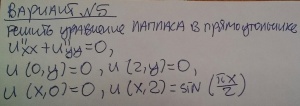 ВАРИАНТ №5
РЕШИТЬ УРАВНЕНИЕ ЛАПЛАСА В ПРЯМОУГОЛЬНИКЕ
u''xx + u''yy = 0,
u(0,y) = 0, u(2,y) = 0,
u(x,0) = 0, u(x,2) = sin(πx/2)